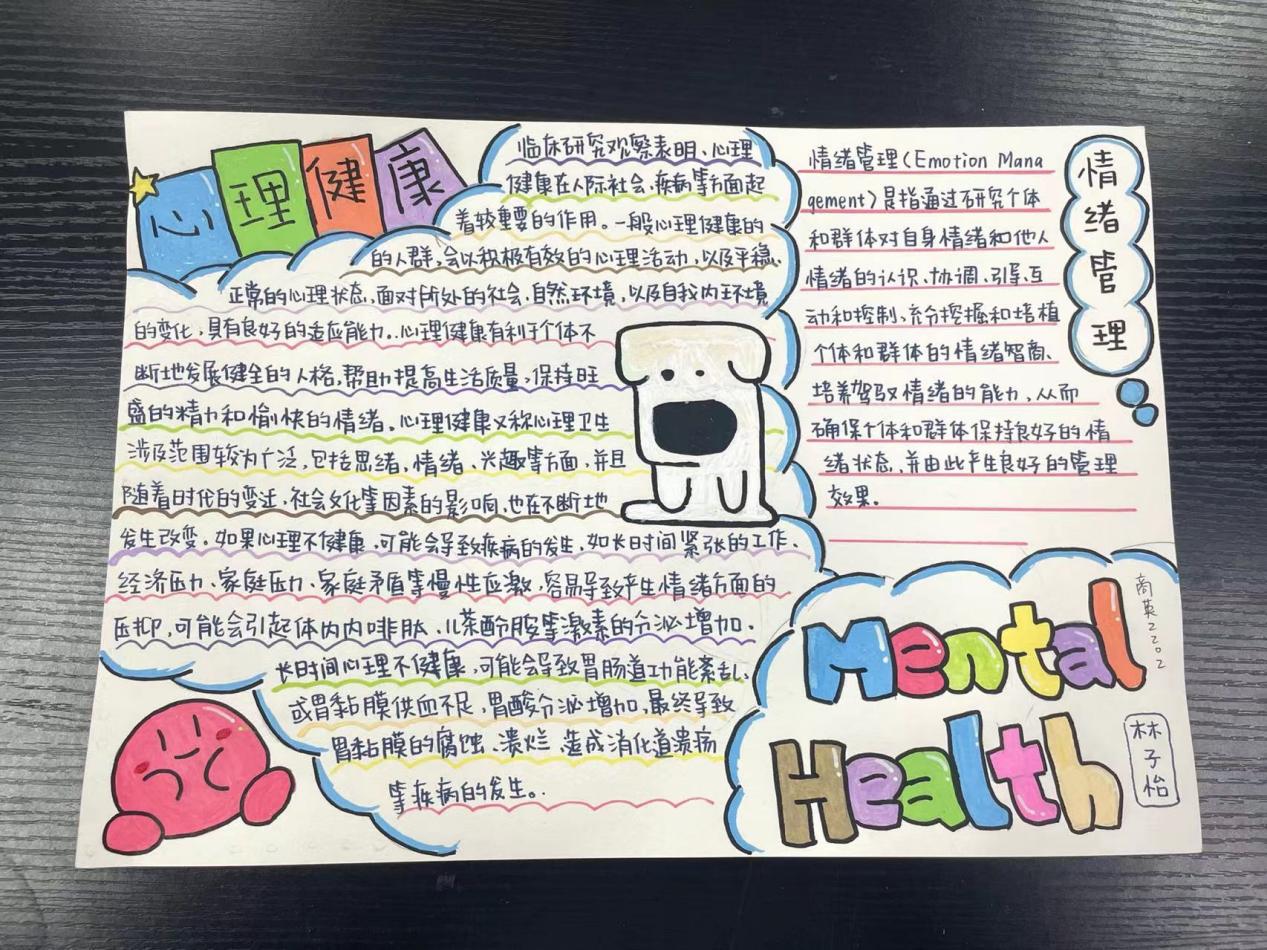 心理健康
临床研究观察表明、心理
健康在人际社会、疾病等方面起
着较重要的作用。一般心理健康的
的人群,会以积极有效的心理活动,以及平稳、
正常的心理状态,面对所处的社会、自然环境,以及自我内环境
的变化,具有良好的适应能力..心理健康有利于个体不
断地发展健全的人格,帮助提高生活质量,保持旺
盛的精力和愉快的情绪。心理健康又称心理卫生
涉及范围较为广泛,包括思绪,情绪、兴趣等方面,并且
随着时代的变迁、社会文化等因素的影响,也在不断地
发生改变。如果心理不健康,可能会导致疾病的发生,如长时间紧张的工作、
经济压力、家庭压力、家庭矛盾等慢性应激,容易导致产生情绪方面的
压抑,可能会引起体内内啡肽、儿茶酚胺等激素的分泌增加.
长时间心理不健康,可能会导致胃肠道功能紊乱、
或胃黏膜供血不足,胃酸分泌增加,最终导致
胃黏膜的腐蚀、溃烂、造成消化道溃疡
等疾病的发生。.
情绪管理
情绪管理(Emotion Mana
gement)是指通过研究个体
和群体对自身情绪和他人
情绪的认识、协调、引导、互
动和控制、充分挖掘和培植
个体和群体的情绪智商、
培养驾驭情绪的能力,从而
确保个体和群体保持良好的情
绪状态,并由此产生良好的管理
效果。
Mental
Health
商英2202
林子怡